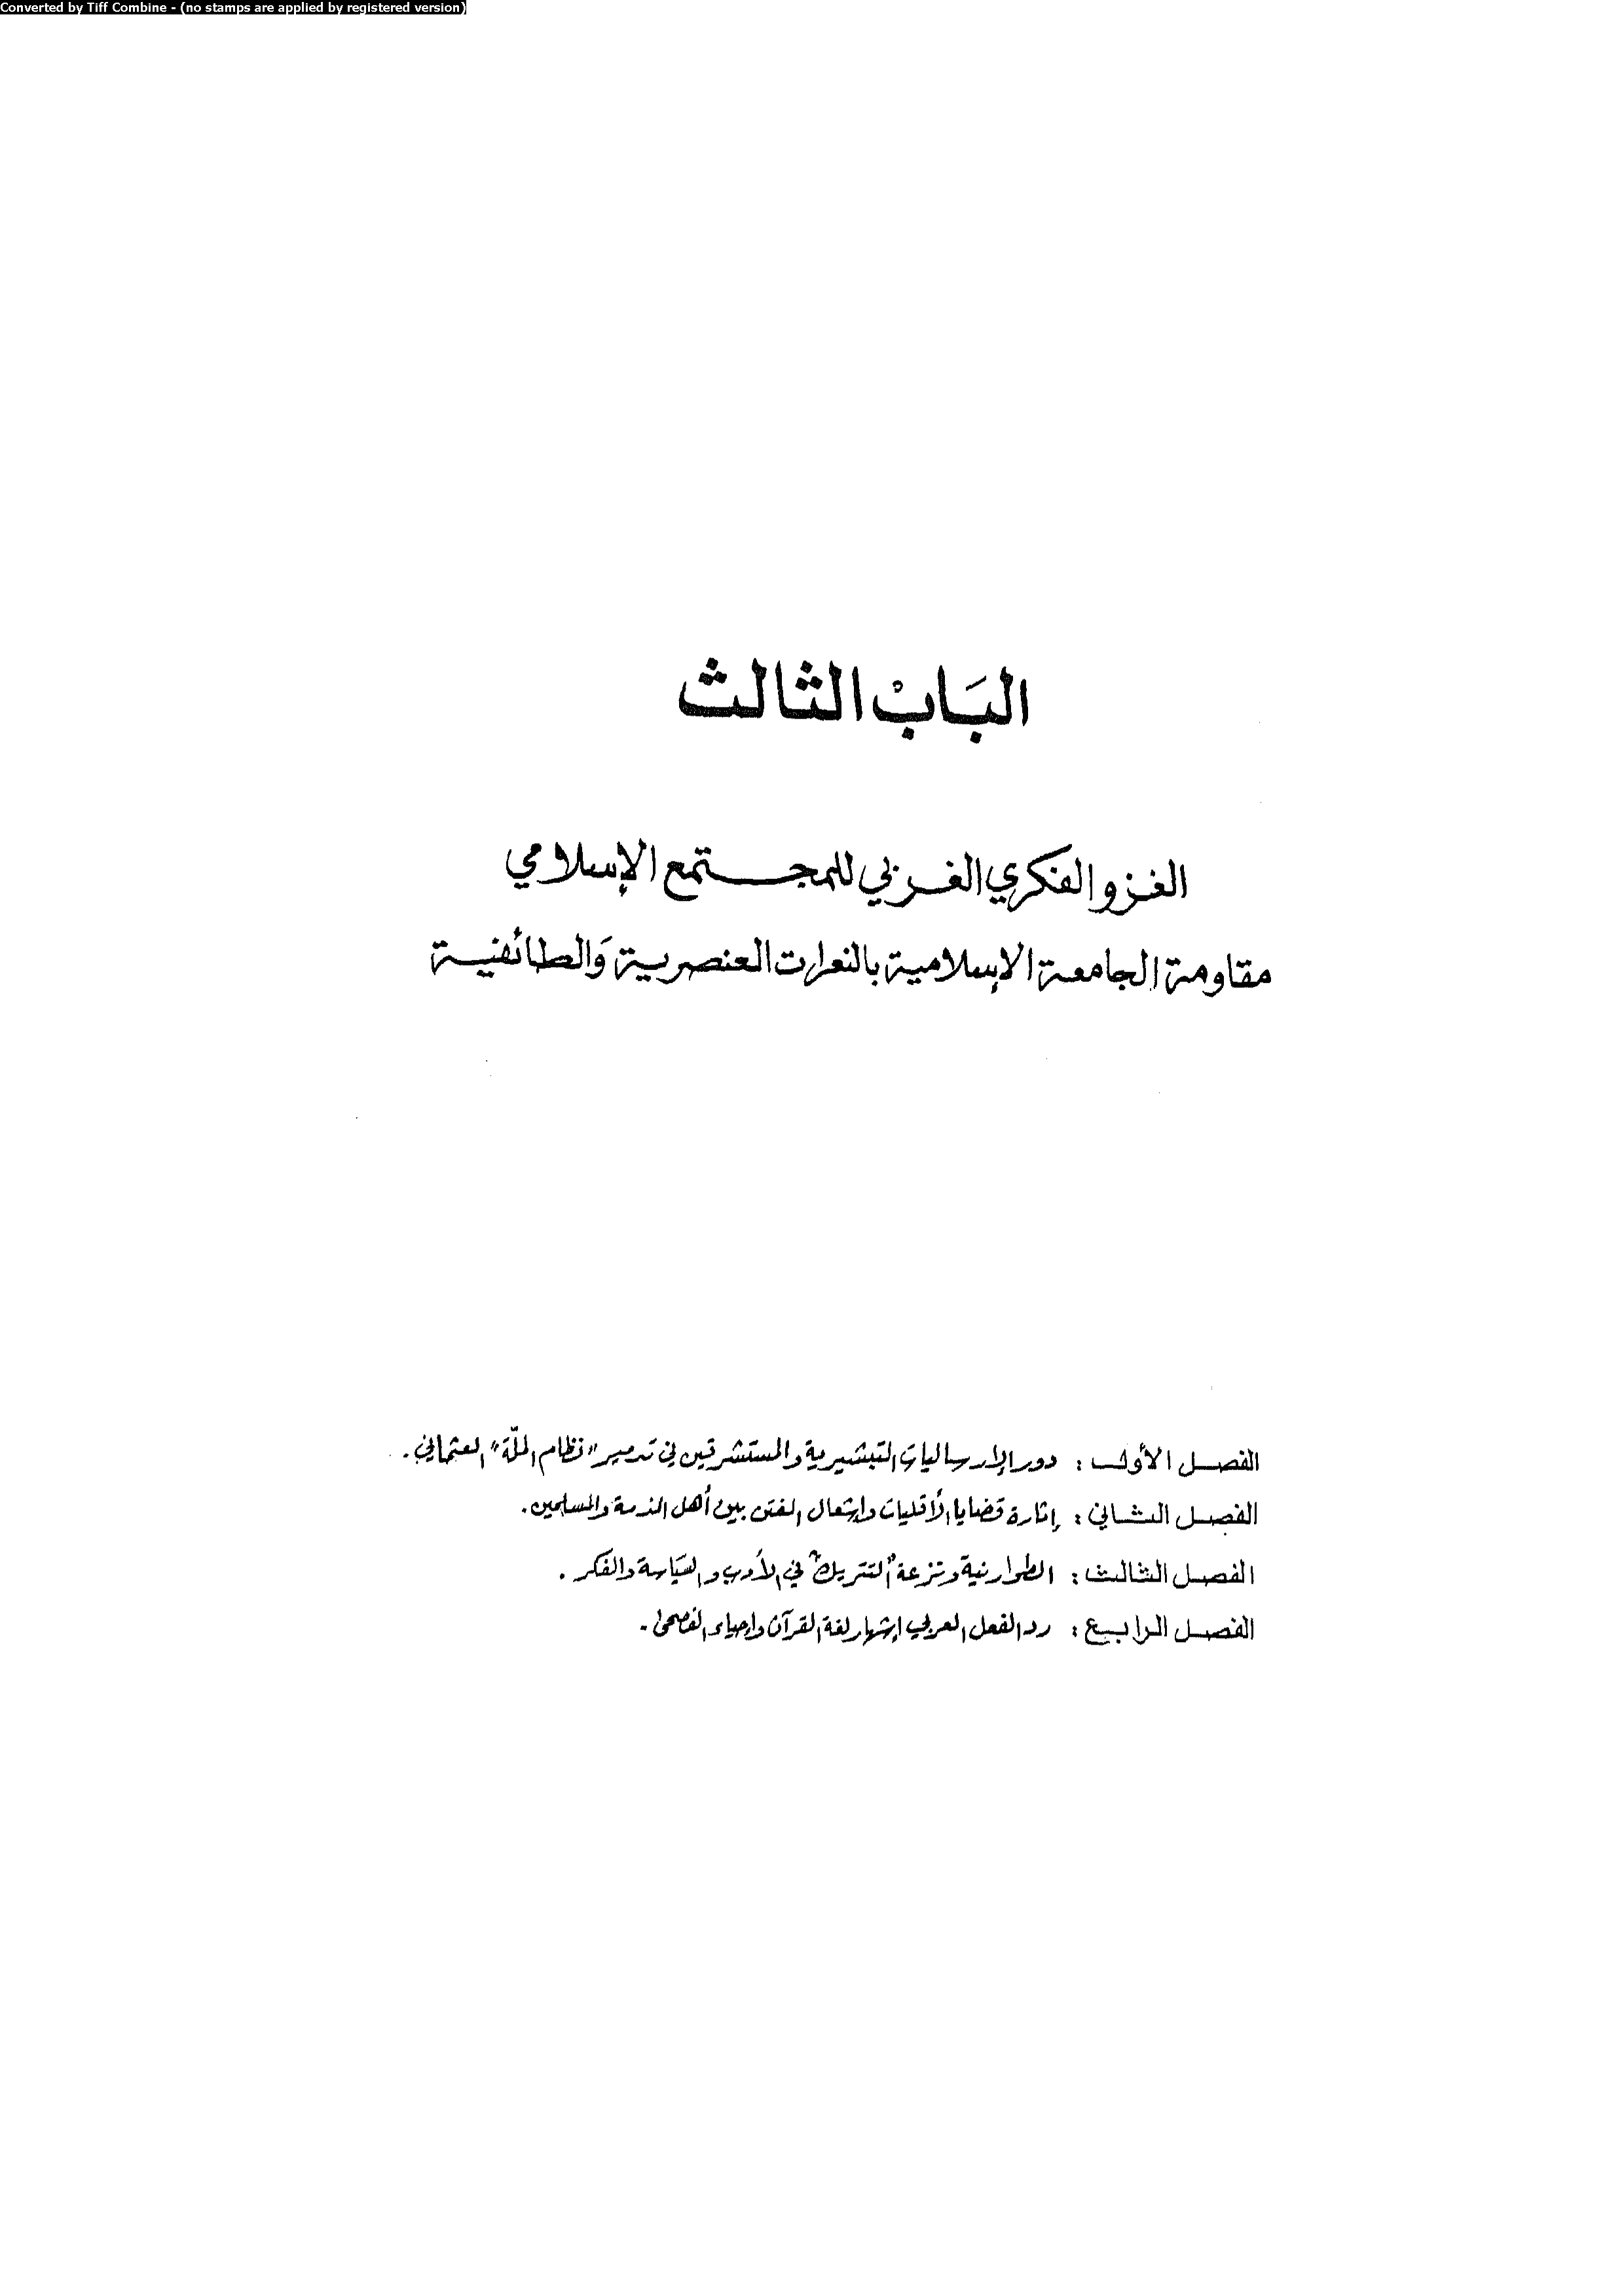 Converted by Tiff Combine - (no stamps are applied by registered version)
البَابْ الثالث
الغزو الفكري الغربي للمجتمع الإسلامي
مقاومة الجامعة الإسلامية بالنعرات العنصرية وَالطائفية
الفصل الأول : دور الإرساليات التبشيرية والمستشرقين في تدمير "نظام الملّة" العثماني .
الفصل الثاني : إثارة قضايا الأقليات وإشعال الفتن بين أهل الذمة والمسلمين .
الفصل الثالث : الطورانية ونزعة "التتريك" في الأدب والسّياسة والفكر .
الفصل الرابع : رد الفعل العربي إشهار لغة القرآن وإحياء الفصحى .